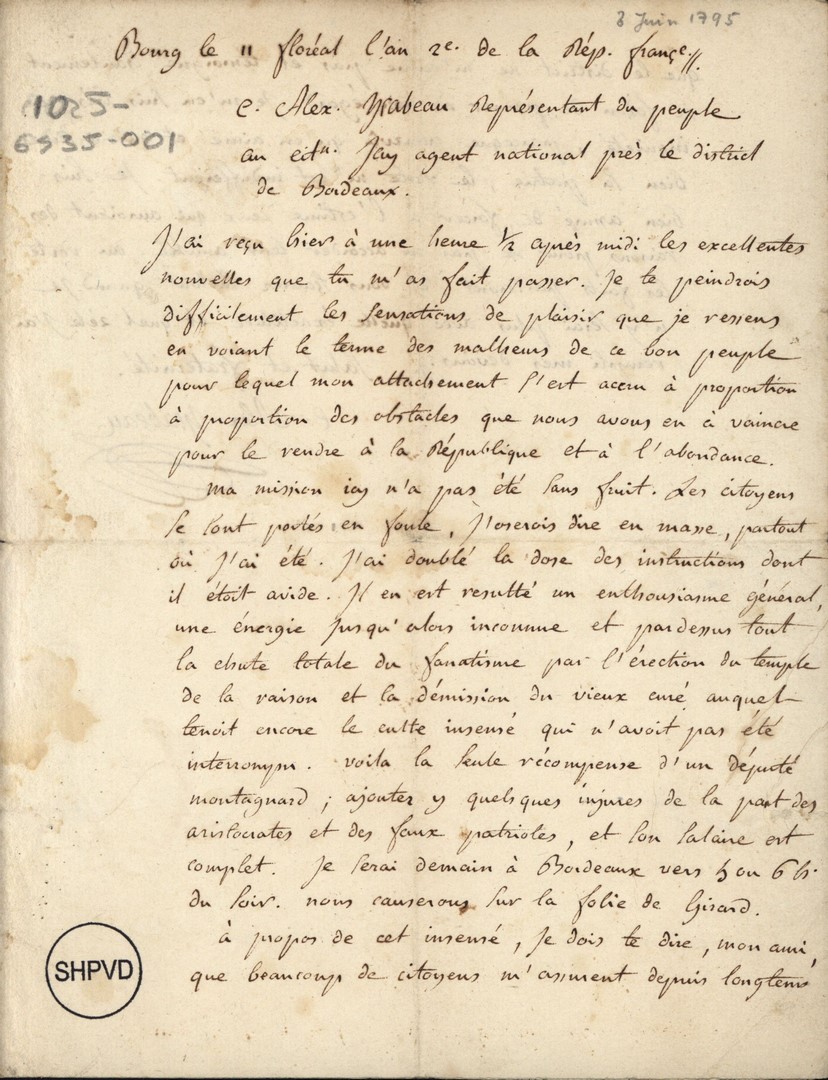 3 Juin 1795
Bourg le 11 floréal l'an 2e. de la Rép. françe.//
1025-
6S35-001
C. Alex. Ysabeau Représentant du peuple
au citn. Jay agent national près le district
de Bordeaux.
J'ai reçu hier à une heure 1/2 après midi les excellentes
nouvelles que tu m'as fait passer. Je te peindrois
difficilement les sensations de plaisir que je ressens
en voiant le terme des malheurs de ce bon peuple
pour lequel mon attachement s'est accru à proportion
à proportion des obstacles que nous avons eu à vaincre
pour le rendre à la République et à l'abondance.
ma mission icy n'a pas été sans fruit. Les citoyens
se sont portés en foule, j'oserois dire en masse, partout
où j'ai été. J'ai doublé la dose des instructions dont
il étoit avide. Il en est resulté un enthousiasme général,
une énergie jusqu'alors inconnue et pardessus tout
la chute totale du fanatisme par l'érection du temple
de la raison et la démission du vieux curé auquel
tenoit encore le culte insensé qui n'avoit pas été
interrompu. voila la seule récompense d'un député
montagnard ; ajoutez y quelques injures de la part des
aristocrates et des faux patriotes, et son salaire est
complet. Je serai demain à Bordeaux vers 5 ou 6 h.
du soir. nous causerons sur la folie de Girard.
à propos de cet insensé, je dois te dire, mon ami,
que beaucoup de citoyens m'assurent depuis longtems
SHPVD